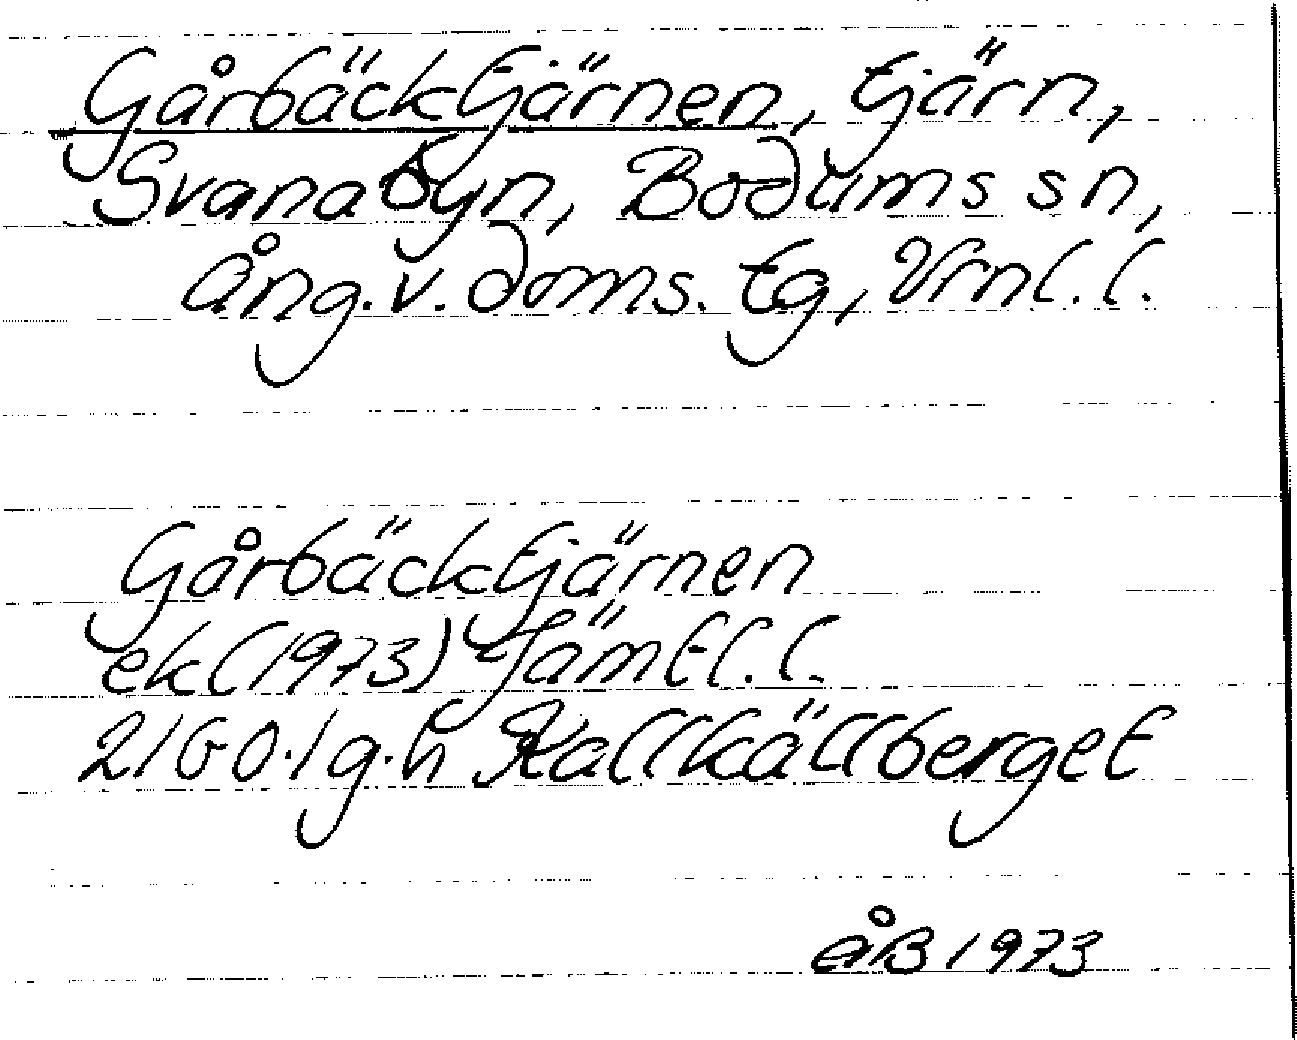 Gårbäcktjärnen, tjärn,
Svanabyn, Bodums sn,
Ång. v. doms. tg, Vrnl. l.
Gårbäcktjärnen
ek (1973) Jämtl. l.
21G 0.1 g.h Kallkällberget
ÅB 1973